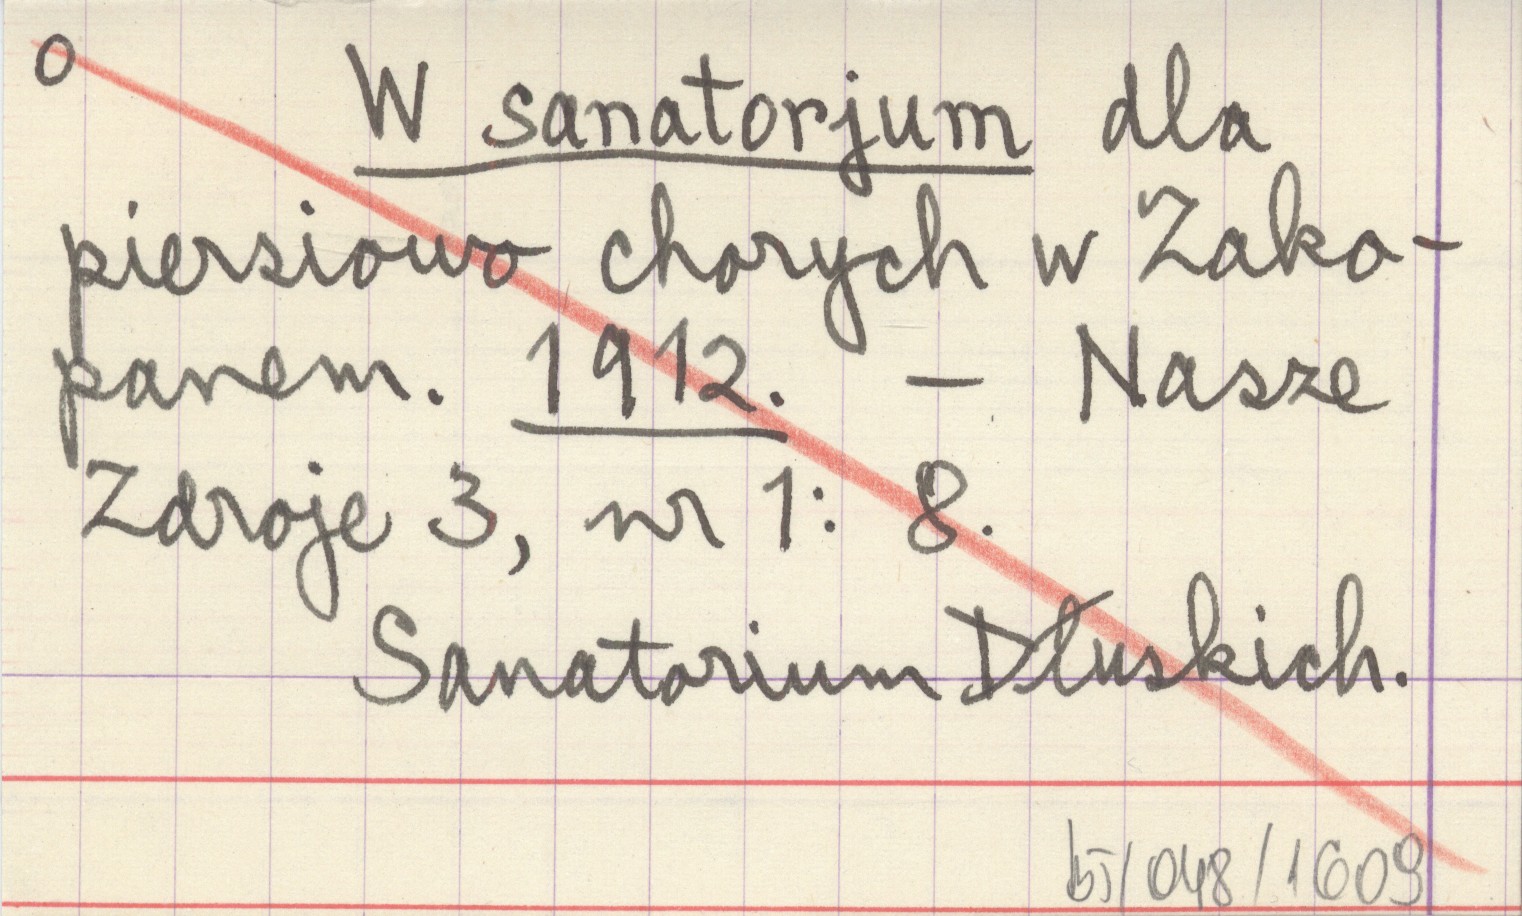 O
W sanatorjum dla
piersiowo chorych w Zako-
panem. 1912. — Nasze
Zdroje 3, nr 1: 8.
Sanatorium Dłuskich.
bJ/048/1609